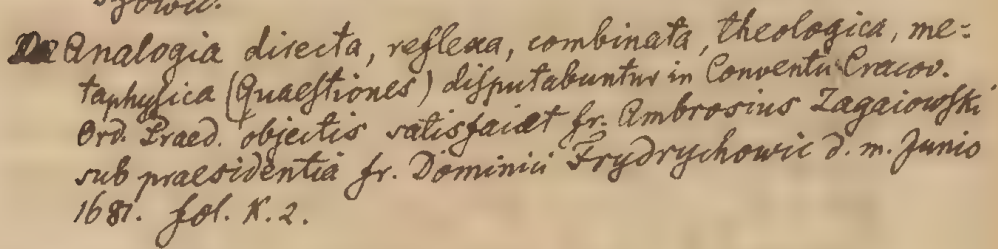 De Analogia directa, reflexa, combinata, theologica, me=
taphysica (Quaestiones) disputabuntur in Conventu Cracov.
Ord. Praed. objectis satisfaiet fr. Ambrosius Zagaiowski
sub praesidentia fr. Dominici Frydrychowic d. m. Junio
1681. fol. K. 2.